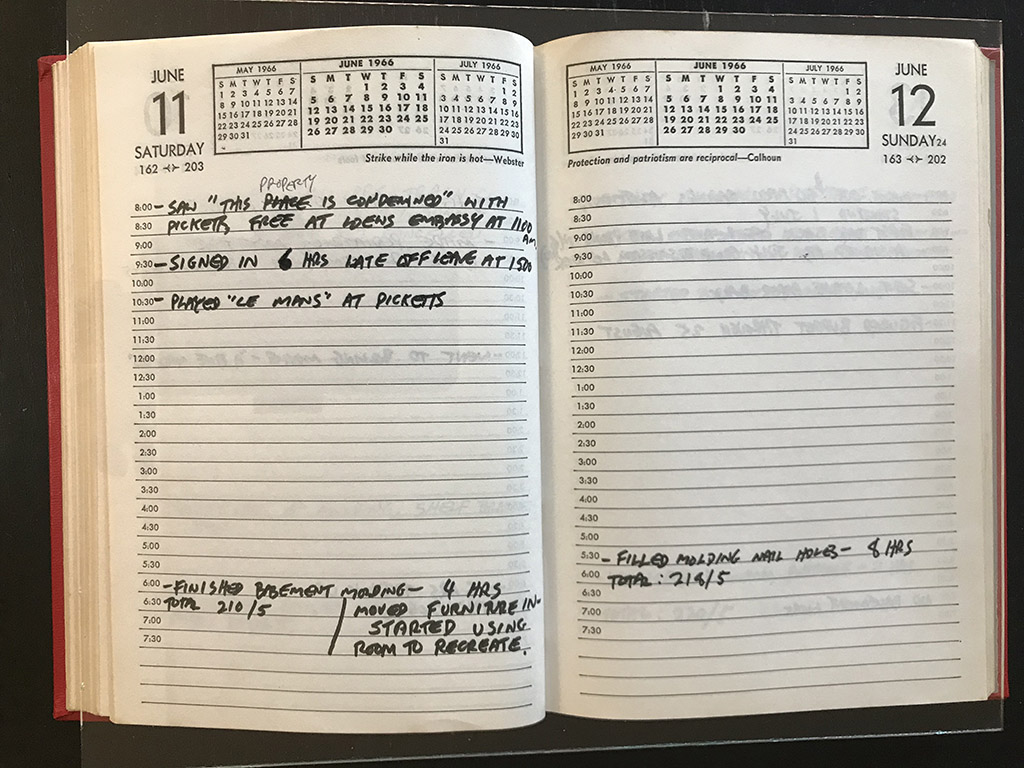 JUNE
11
SATURDAY
162 203
MAY 1966
S M T W T F S
1 2 3 4 5 6 7
8 9 10 11 12 13 14
15 16 17 18 19 20 21
22 23 24 25 26 27 28
29 30 31
JUNE 1966
S M T W T F S
1 2 3 4
5 6 7 8 9 10 11
12 13 14 15 16 17 18
19 20 21 22 23 24 25
26 27 28 29 30
JULY 1966
S M T W T F S
1 2
3 4 5 6 7 8 9
10 11 12 13 14 15 16
17 18 19 20 21 22 23
24 25 26 27 28 29 30
31
Strike while the iron is hot—Webster
PROPERTY
8:00 – SAW "THIS PLACE IS CONDEMNED" WITH
8:30 PICKETTS, FREE AT LOEWS EMBASSY AT 1100
9:00 AM.
9:30 – SIGNED IN 6 HRS LATE OFF LEAVE AT 1500
10:00
10:30 – PLAYED "LE MANS" AT PICKETTS
11:00
11:30
12:00
12:30
1:00
1:30
2:00
2:30
3:00
3:30
4:00
4:30
5:00
5:30
6:00 – FINISHED BASEMENT MOLDING – 4 HRS
6:30 TOTAL 210/5 MOVED FURNITURE IN.
7:00 STARTED USING
7:30 ROOM TO RECREATE.
MAY 1966
S M T W T F S
1 2 3 4 5 6 7
8 9 10 11 12 13 14
15 16 17 18 19 20 21
22 23 24 25 26 27 28
29 30 31
JUNE 1966
S M T W T F S
1 2 3 4
5 6 7 8 9 10 11
12 13 14 15 16 17 18
19 20 21 22 23 24 25
26 27 28 29 30
JULY 1966
S M T W T F S
1 2
3 4 5 6 7 8 9
10 11 12 13 14 15 16
17 18 19 20 21 22 23
24 25 26 27 28 29 30
31
JUNE
12
SUNDAY 24
163 202
Protection and patriotism are reciprocal—Calhoun
8:00
8:30
9:00
9:30
10:00
10:30
11:00
11:30
12:00
12:30
1:00
1:30
2:00
2:30
3:00
3:30
4:00
4:30
5:00
5:30 – FILLED MOLDING NAIL HOLES – 8 HRS
6:00 TOTAL: 218/5
6:30
7:00
7:30